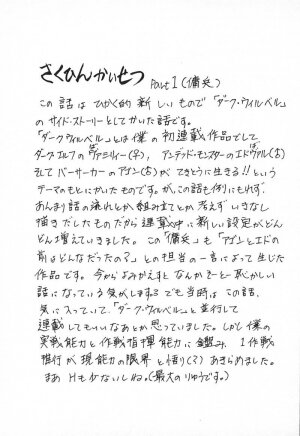 さくひんかいせつ Part 1 (傭兵)
この話はひかく的新しいもので「ダーク・ウィルベル」
のサイド・ストーリーとしてかいた話です。
「ダークウィルベル」とは僕の初連載作品でして
ダークエルフのヴァミリィー(♀)、アンデッド・モンスターのエドヴァル(♂)
そしてバーサーカーのアゴン(♂)ができとうに生きる!!という
テーマのもとにかいたものですが、この話も例にもれず、
あんまり話の流れとか組み立てとか考えずいきなし
描きだしたものだから連載中に新しい設定がどん
どん増えていきました。この「傭兵」も「アゴンとエドの
前はどんなだったの?」との担当の一言によって生じた
作品です。今からよみかえすとなんかえーと恥ずかしい
話になっている気がしますう でも当時はこの話、
気に入っていて、「ダーク・ウィルベル」と並行して
連載してもいいなあとか思っていました。しかし僕の
実戦能力と作戦指揮能力に鑑み、1作戦
推行が現能力の限界と悟り(?)あきらめました。
まあHも少ないしね。(最大のりゆうです。)